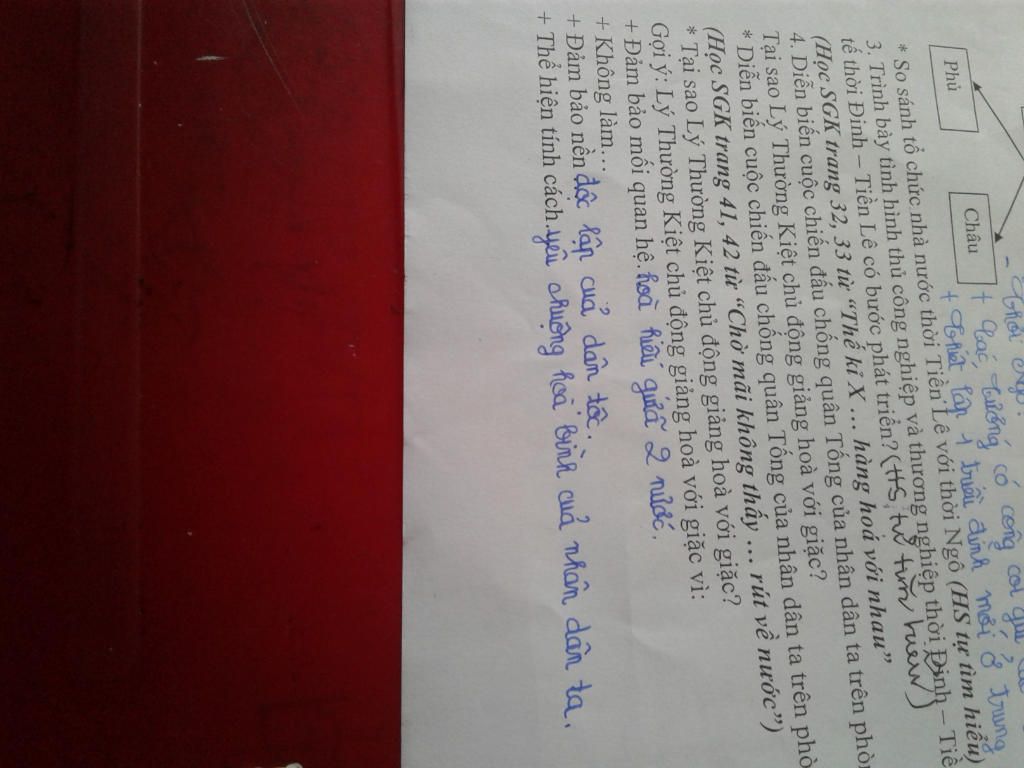 - thời Ngô:
+ các tướng có công coi giữ
+ thiết lập 1 triều đình mới ở trung
Phủ
Châu
* So sánh tổ chức nhà nước thời Tiền Lê với thời Ngô (HS tự tìm hiểu)
3. Trình bày tình hình thủ công nghiệp và thương nghiệp thời Đinh – Tiề
tế thời Đinh – Tiền Lê có bước phát triển? (HS tự tìm hiểu)
(Học SGK trang 32, 33 từ “Thế kỉ X … hàng hoá với nhau”
4. Diễn biến cuộc chiến đấu chống quân Tống của nhân dân ta trên phòn
Tại sao Lý Thường Kiệt chủ động giảng hoà với giặc?
* Diễn biến cuộc chiến đấu chống quân Tống của nhân dân ta trên phò
(Học SGK trang 41, 42 từ “Chờ mãi không thấy … rút về nước”)
* Tại sao Lý Thường Kiệt chủ động giảng hoà với giặc?
Gợi ý: Lý Thường Kiệt chủ động giảng hoà với giặc vì:
+ Đảm bảo mối quan hệ. hoà hiếu giữa 2 nước.
+ Không làm…
+ Đảm bảo nền độc lập của dân tộc.
+ Thể hiện tính cách. yêu chuộng hoà bình của nhân dân ta.